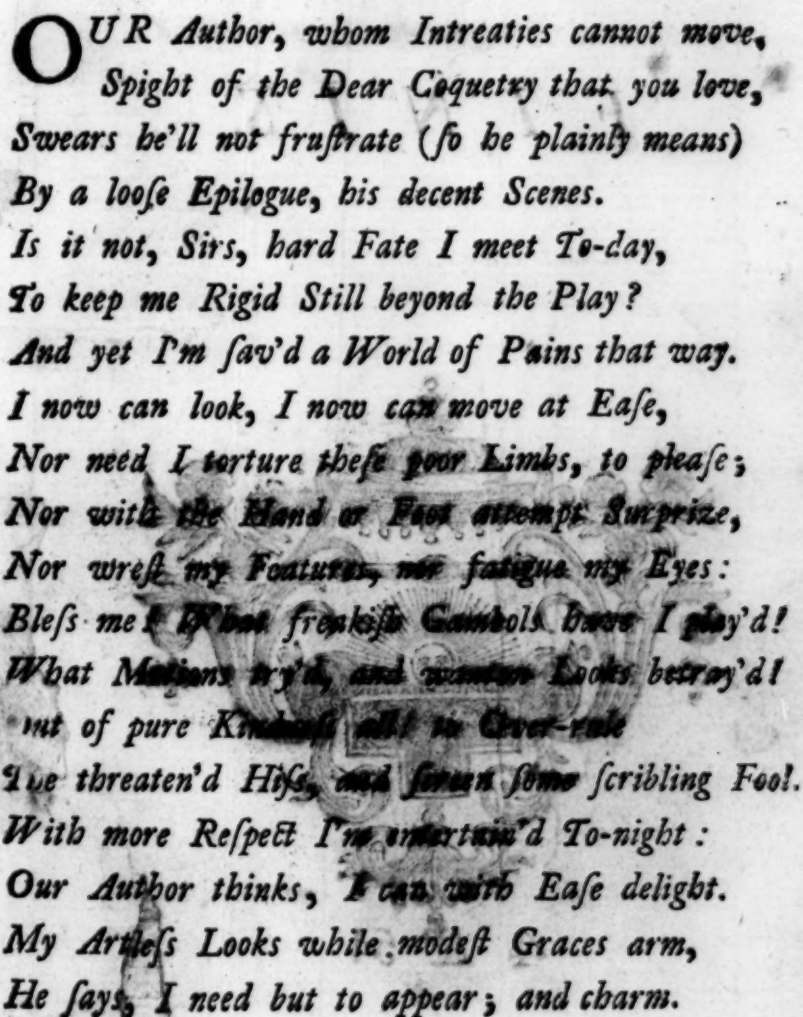 OUR Author, whom Intreaties cannot move,
Spight of the Dear Coquetry that you love,
Swears he'll not fruſtrate (ſo he plainly means)
By a looſe Epilogue, his decent Scenes.
Is it not, Sirs, hard Fate I meet To-day,
To keep me Rigid Still beyond the Play?
And yet I'm ſav'd a World of Pains that way.
I now can look, I now can move at Eaſe,
Nor need I torture theſe poor Limbs, to pleaſe;
Nor with the Hand or Foot attempt Surprize,
Nor wreſt my Features, nor fatigue my Eyes:
Bleſs me! What freakiſh Gambols have I play'd!
What Motions try'd, and wanton Looks betray'd!
out of pure Kindneſs all! to Over-rule
The threaten'd Hiſs, and ſcreen ſome ſcribling Fool.
With more Reſpect I'm entertain'd To-night:
Our Author thinks, I can with Eaſe delight.
My Artleſs Looks while modeſt Graces arm,
He ſays, I need but to appear; and charm.